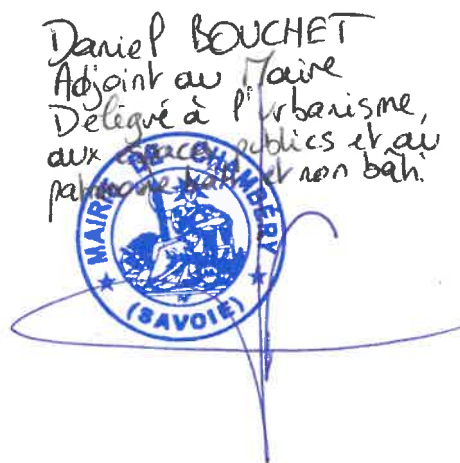 Daniel BOUCHET
Adjoint au Maire
Délégué à l'urbanisme,
aux espaces publics et au
patrimoine bâti et non bâti.
MAIRIE DE CHAMBÉRY
(SAVOIE)